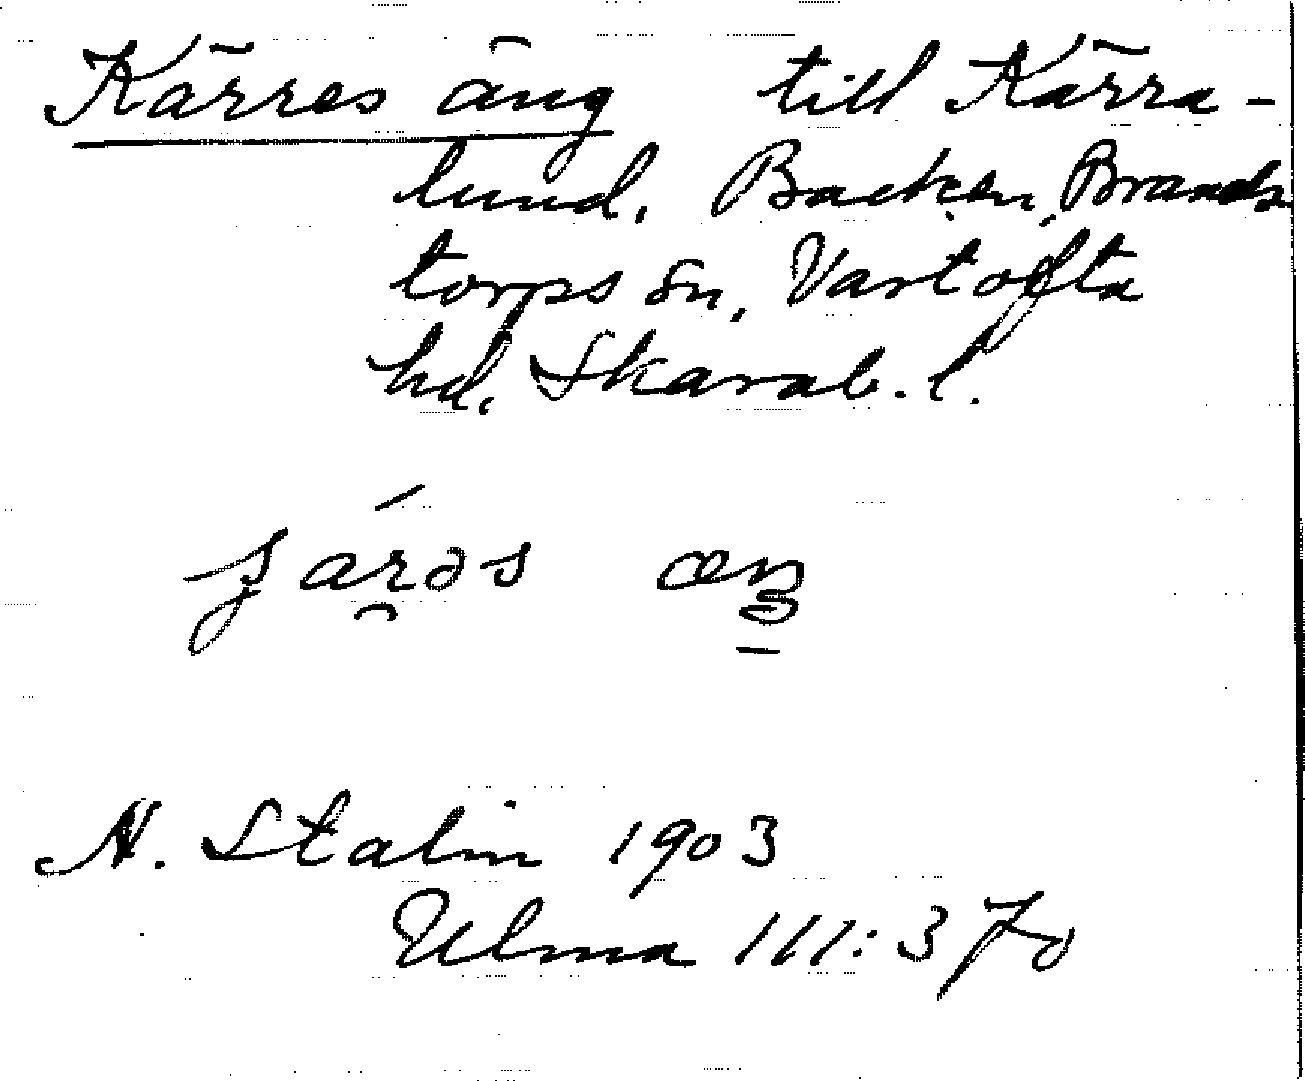 Kärres äng till Kärra-
lund, Backen, Brands
torps sn, Vartofta
hd, Skarab. l.
H. Stalin 1903
Ulma 111:370